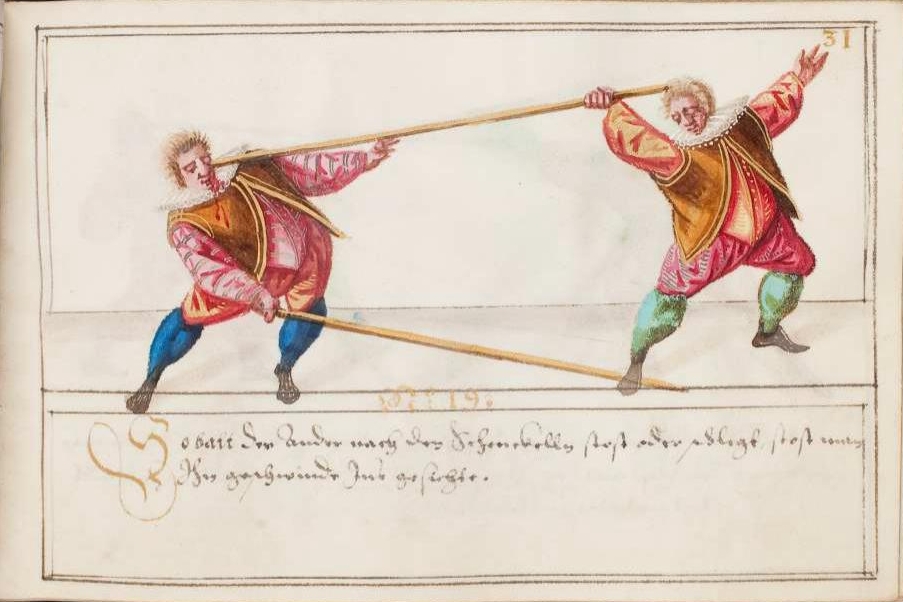 31
19.
So baltt der Ander nach den Schenckelln stost oder schlegt, stost man
Ihn geschwinde Ins gesichte.